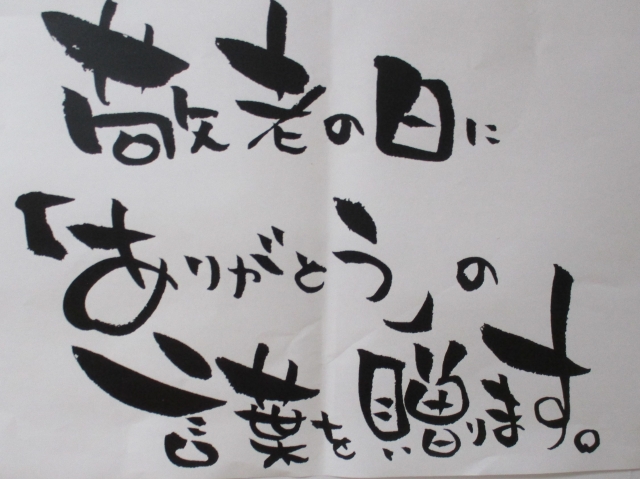 敬老の日に
「ありがとう」の
言葉を贈ります。